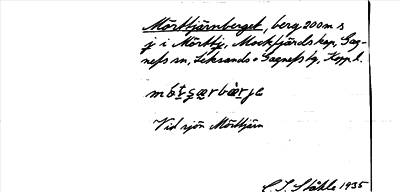 Mörttjärnberget, berg 200 m s
j i Mörttj, Mockfjärds kap, Gag-
nefs sn, Leksands o Gagnefs tg, Kopp l.
Vid sjön Mörttjärn
C. I. Ståhle 1935